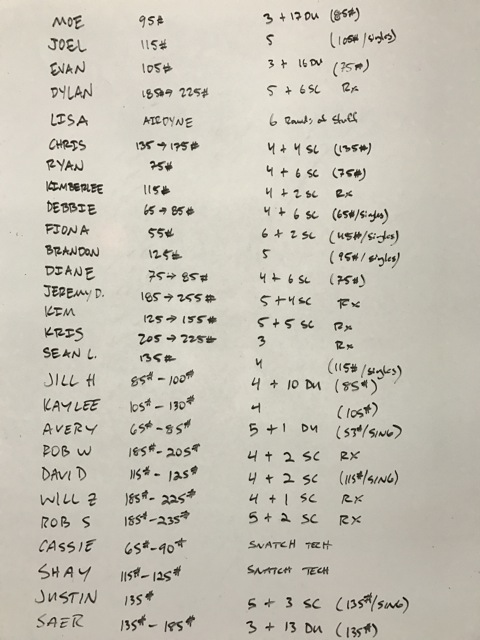 MOE 95# 3 + 17 DU (85#)
JOEL 115# 5 (105#/singles)
EVAN 105# 3 + 16 DU (75#)
DYLAN 185# → 225# 5 + 6 SC Rx
LISA AIRDYNE 6 Rounds of Stuff
CHRIS 135 → 175# 4 + 4 SC (135#)
RYAN 75# 4 + 6 SC (75#)
KIMBERLEE 115# 4 + 2 SC Rx
DEBBIE 65 → 85# 4 + 6 SC (65#/singles)
FIONA 55# 6 + 2 SC (45#/singles)
BRANDON 125# 5 (95#/singles)
DIANE 75 → 85# 4 + 6 SC (75#)
JEREMY D. 185 → 255# 5 + 4 SC Rx
KIM 125 → 155# 5 + 5 SC Rx
KRIS 205 → 225# 3 Rx
SEAN L. 135# 4 (115#/singles)
JILL H 85# - 100# 4 + 10 DU (85#)
KAYLEE 105# - 130# 4 (105#)
AVERY 65# - 85# 5 + 1 DU (53#/SING)
ROB W 185# - 205# 4 + 2 SC RX
DAVID 115# - 125# 4 + 2 SC (115#/SING)
WILL Z 185# - 225# 4 + 1 SC RX
ROB S 185# - 235# 5 + 2 SC RX
CASSIE 65# - 90# SNATCH TECH
SHAY 115# - 125# SNATCH TECH
JUSTIN 135# 5 + 3 SC (135#/SING)
SAER 135# - 185# 3 + 13 DU (135#)